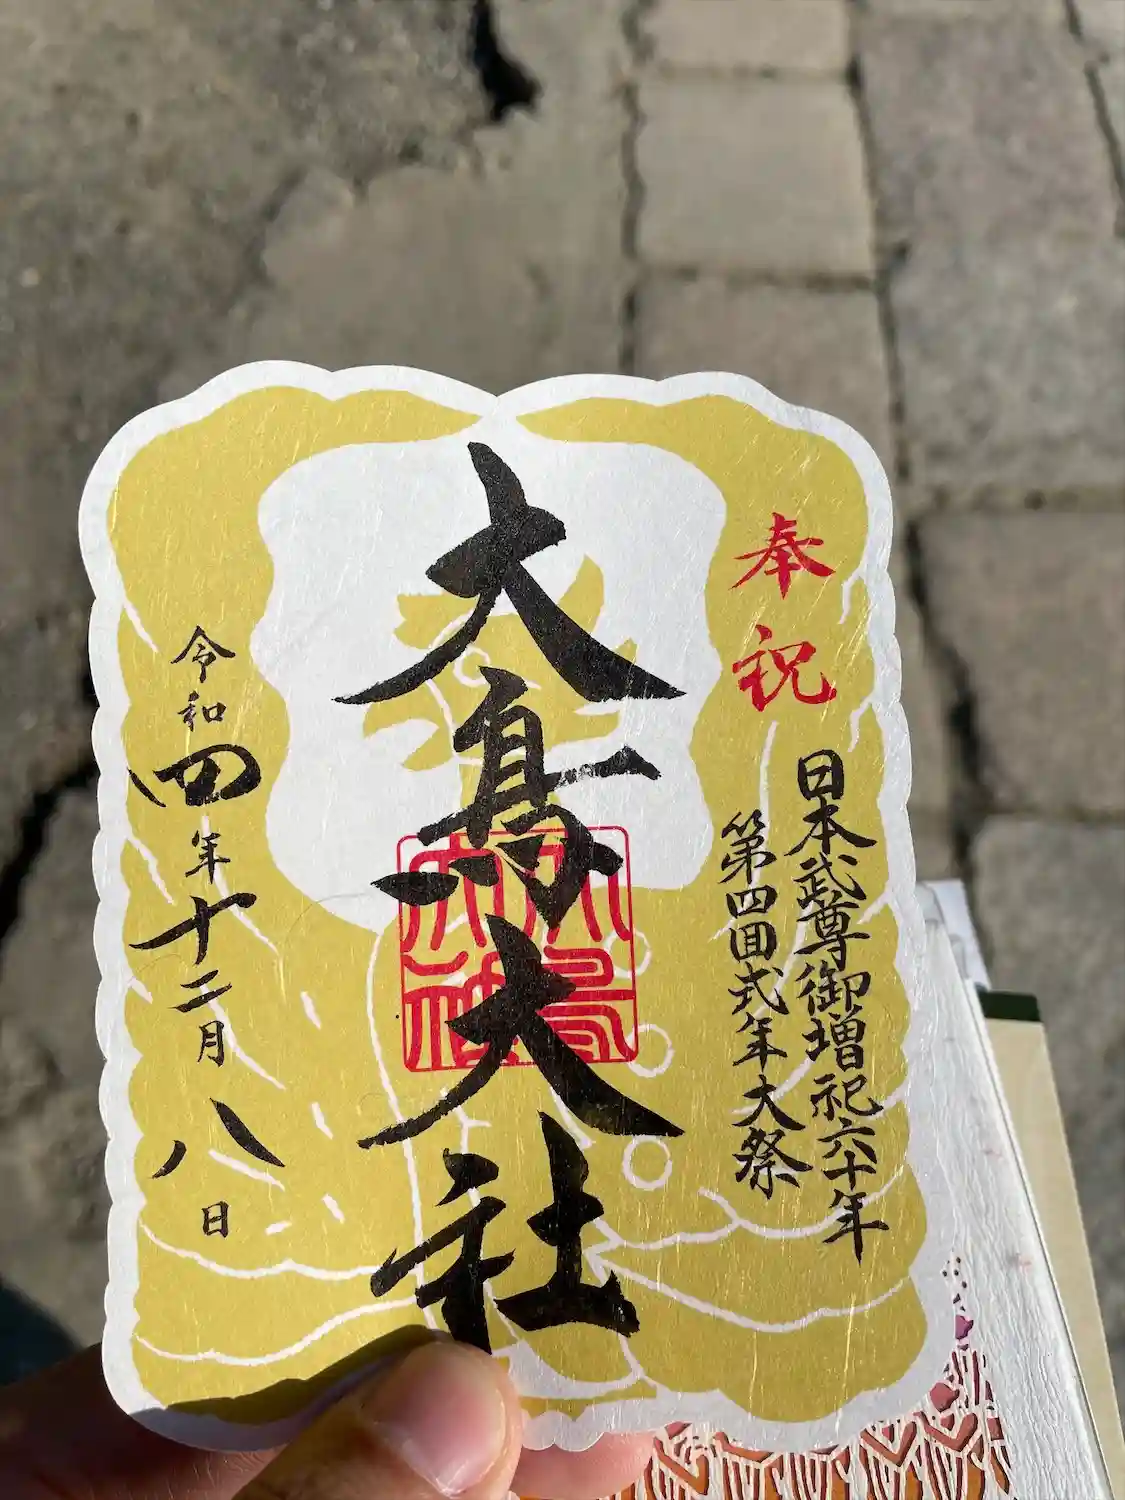 奉祝
日本武尊御増祀六十年
第四回式年大祭
大鳥大社
大鳥大社
令和四年十二月八日